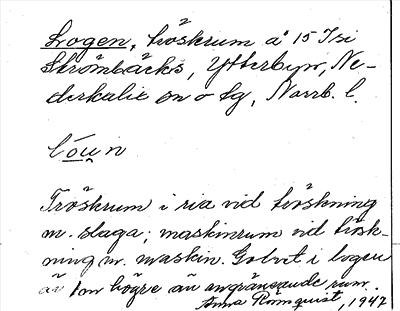 Logen, tröskrum å 15 Isi
Strömbäcks, Ytterbyn, Ne-
derkalix sn o tg, Norrb. l.
lóun
Tröskrum i ria vid tröskning
m. slaga; maskinrum vid trösk-
ning m. maskin. Golvet i logen
är 1 m högre än angränsande rum.
Anna Römquist, 1942